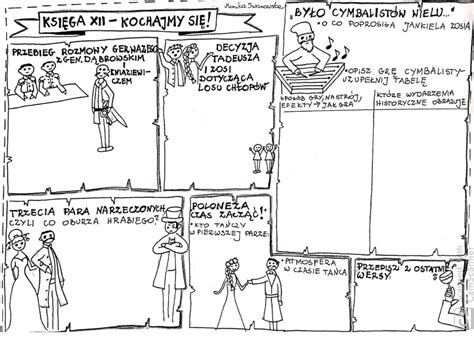 KSIĘGA XII – KOCHAJMY SIĘ!
Monika Iwanowska
PRZEBIEG ROZMOWY GERWAZEGO
Z GEN. DĄBROWSKIM
I
KNIAZIEWI-
CZEM
DECYZJA
TADEUSZA
I ZOSI
DOTYCZĄCA
LOSU CHŁOPÓW
„BYŁO CYMBALISTÓW WIELU..."
• O CO POPROSIŁA JANKIELA ZOSIA
• OPISZ GRĘ CYMBALISTY-
UZUPEŁNIJ TABELĘ
SPOSÓB GRY, NASTRÓJ,
EFEKTY → JAK GRA
KTÓRE WYDARZENIA
HISTORYCZNE OBRAZUJE
TRZECIA PARA NARZECZONYCH
CZYLI CO OBURZA HRABIEGO?
POLONEZA
CZAS ZACZĄĆ!"
• KTO TAŃCZY
W PIERWSZEJ PARZE
• ATMOSFERA
W CZASIE TAŃCA
PRZEPISZ 2 OSTATNIE
WERSY: